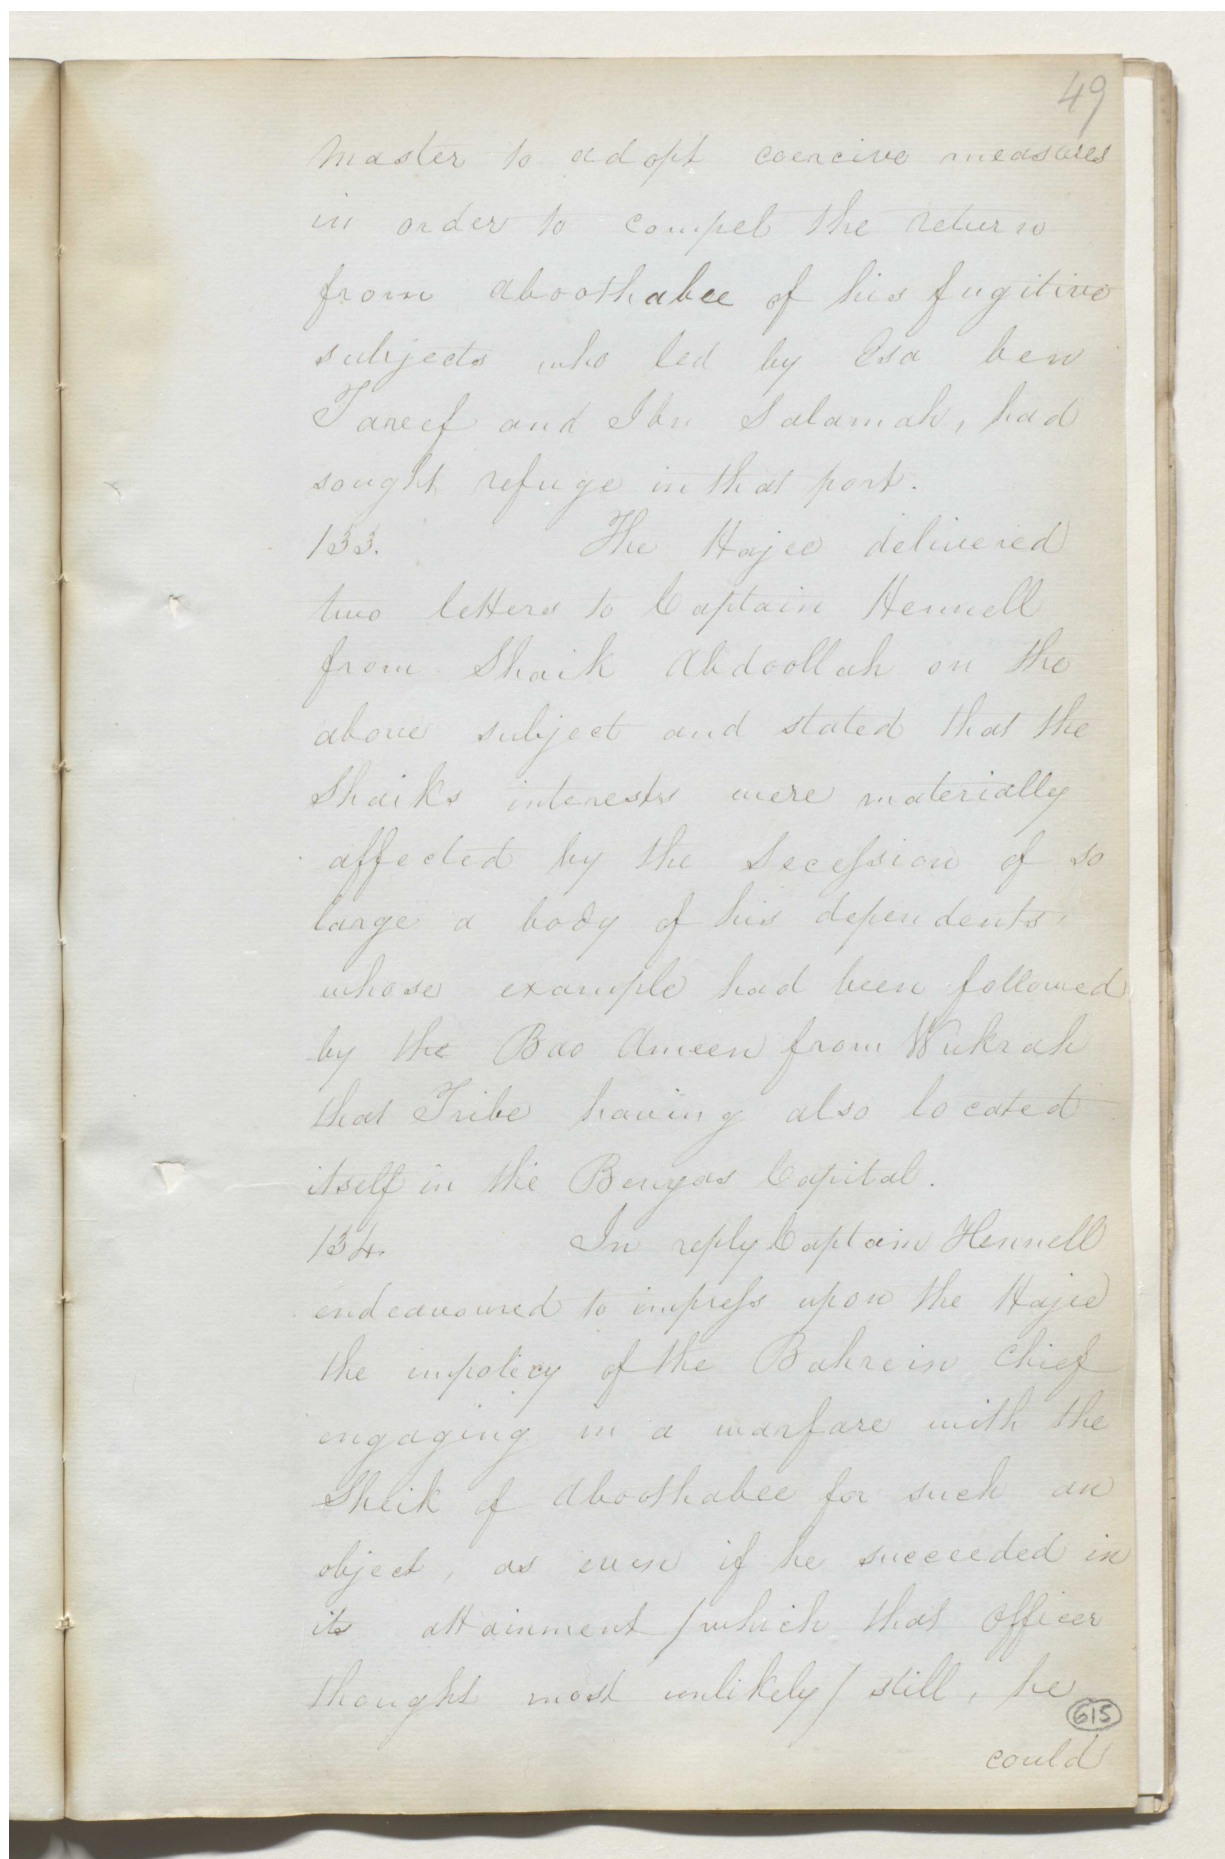 49
master to adopt coercive measures
in order to compel the return
from Aboothabee of his fugitive
subjects who led by Esa ben
Tareef and Ibn Salamah, had
sought refuge in that port.
133. The Hajee delivered
two letters to Captain Hennell
from Shaik Abdoollah on the
above subject and stated that the
Shaiks interests were materially
affected by the Secession of so
large a body of his dependents,
whose example had been followed
by the Boo Ameen from Wukrah
that Tribe having also located
itself in the Benyas Capital.
134. In reply Captain Hennell
endeavoured to impress upon the Hajee
the impolicy of the Bahrein Chief
engaging in a warfare with the
Sheik of Aboothabee for such an
object, as even if he succeeded in
its attainment /which that officer
thought most unlikely/ still, he
615
could